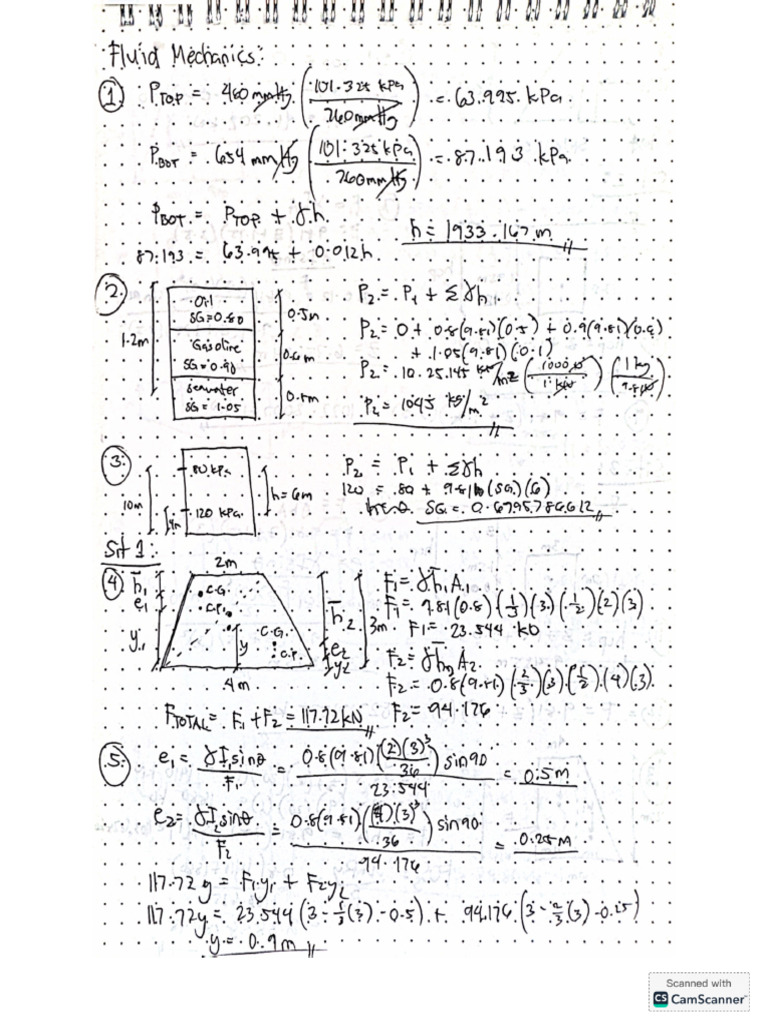 Fluid Mechanics:
① P_TOP = 480 mmHg (101.325 kPa / 760mmHg) = 63.995 kPa
P_BOT = 654 mmHg (101.325 kPa / 760mmHg) = 87.193 kPa
P_BOT = P_TOP + γh
h = 1933.167 m
87.193 = 63.995 + 0.012h
②
Oil
SG=0.80
Gasoline
SG=0.90
Seawater
SG = 1.05
1.2m
0.5m
0.6m
0.1m
P₂ = P₁ + Σγh
P₂ = 0 + 0.8(9.81)(0.5) + 0.9(9.81)(0.6)
+ 1.05(9.81)(0.1)
P₂ = 10.25145 kN/m² (1000 N / 1 kN) (1 kg / 9.81N)
P₂ = 1045 kg/m²
③
80 kPa
120 kPa
10m
4m
h=6m
P₂ = P₁ + Σγh
120 = 80 + 9.81(SG)(6)
SG = 0.6795786612
Sit 1:
④
2m
h̄₁
e₁
y₁
C.G.
C.P.
C.G.
C.P.
y
h̄₂
e₂
y₂
3m
4m
F₁ = γh̄₁A₁
F₁ = 9.81(0.8)(1/3)(3)(1/2)(2)(3)
F₁ = 23.544 kN
F₂ = γh̄₂A₂
F₂ = 0.8(9.81)(2/3)(3)(1/2)(4)(3)
F_TOTAL = F₁ + F₂ = 117.72 kN
F₂ = 94.176
⑤ e₁ = γI₁sinθ / F₁ = 0.8(9.81)((2)(3)³/36) sin90 / 23.544 = 0.5m
e₂ = γI₂sinθ / F₂ = 0.8(9.81)((4)(3)³/36) sin90 / 94.176 = 0.25m
117.72 y = F₁y₁ + F₂y₂
117.72y = 23.544 (3 - 1/3(3) - 0.5) + 94.176 (3 - 2/3(3) - 0.25)
y = 0.9m
Scanned with
CS CamScanner